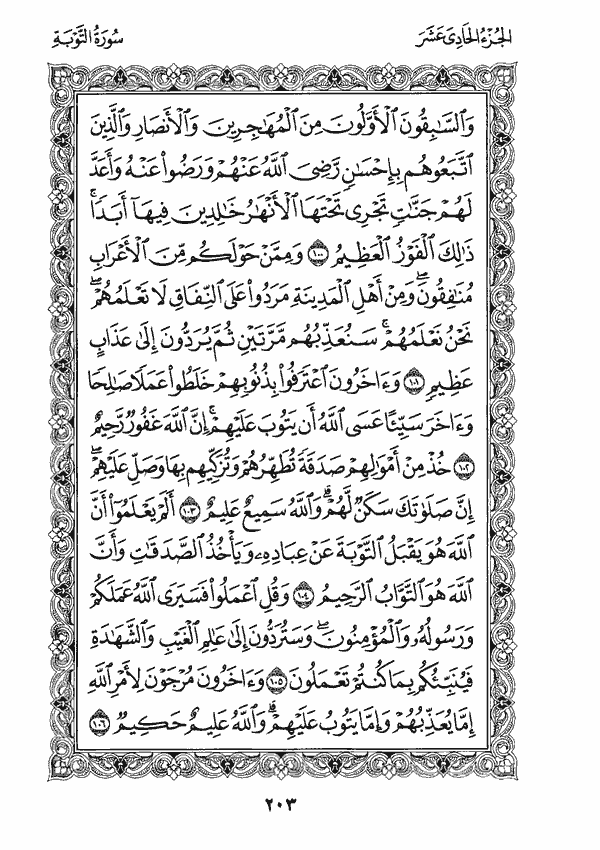 الجُزْءُ الحَادِىَ عَشَرَ
سُورَةُ التَّوْبَةِ
وَٱلسَّٰبِقُونَ ٱلْأَوَّلُونَ مِنَ ٱلْمُهَٰجِرِينَ وَٱلْأَنصَارِ وَٱلَّذِينَ
ٱتَّبَعُوهُم بِإِحْسَٰنٍ رَّضِىَ ٱللَّهُ عَنْهُمْ وَرَضُوا۟ عَنْهُ وَأَعَدَّ
لَهُمْ جَنَّٰتٍ تَجْرِى تَحْتَهَا ٱلْأَنْهَٰرُ خَٰلِدِينَ فِيهَآ أَبَدًا ۚ
ذَٰلِكَ ٱلْفَوْزُ ٱلْعَظِيمُ ١٠٠ وَمِمَّنْ حَوْلَكُم مِّنَ ٱلْأَعْرَابِ
مُنَٰفِقُونَ ۖ وَمِنْ أَهْلِ ٱلْمَدِينَةِ مَرَدُوا۟ عَلَى ٱلنِّفَاقِ لَا تَعْلَمُهُمْ ۖ
نَحْنُ نَعْلَمُهُمْ ۚ سَنُعَذِّبُهُم مَّرَّتَيْنِ ثُمَّ يُرَدُّونَ إِلَىٰ عَذَابٍ
عَظِيمٍ ١٠١ وَءَاخَرُونَ ٱعْتَرَفُوا۟ بِذُنُوبِهِمْ خَلَطُوا۟ عَمَلًا صَٰلِحًا
وَءَاخَرَ سَيِّئًا عَسَى ٱللَّهُ أَن يَتُوبَ عَلَيْهِمْ ۚ إِنَّ ٱللَّهَ غَفُورٌ رَّحِيمٌ
١٠٢ خُذْ مِنْ أَمْوَٰلِهِمْ صَدَقَةً تُطَهِّرُهُمْ وَتُزَكِّيهِم بِهَا وَصَلِّ عَلَيْهِمْ ۖ
إِنَّ صَلَوٰتَكَ سَكَنٌ لَّهُمْ ۗ وَٱللَّهُ سَمِيعٌ عَلِيمٌ ١٠٣ أَلَمْ يَعْلَمُوٓا۟ أَنَّ
ٱللَّهَ هُوَ يَقْبَلُ ٱلتَّوْبَةَ عَنْ عِبَادِهِۦ وَيَأْخُذُ ٱلصَّدَقَٰتِ وَأَنَّ
ٱللَّهَ هُوَ ٱلتَّوَّابُ ٱلرَّحِيمُ ١٠٤ وَقُلِ ٱعْمَلُوا۟ فَسَيَرَى ٱللَّهُ عَمَلَكُمْ
وَرَسُولُهُۥ وَٱلْمُؤْمِنُونَ ۖ وَسَتُرَدُّونَ إِلَىٰ عَٰلِمِ ٱلْغَيْبِ وَٱلشَّهَٰدَةِ
فَيُنَبِّئُكُم بِمَا كُنتُمْ تَعْمَلُونَ ١٠٥ وَءَاخَرُونَ مُرْجَوْنَ لِأَمْرِ ٱللَّهِ
إِمَّا يُعَذِّبُهُمْ وَإِمَّا يَتُوبُ عَلَيْهِمْ ۗ وَٱللَّهُ عَلِيمٌ حَكِيمٌ ١٠٦
٢٠٣